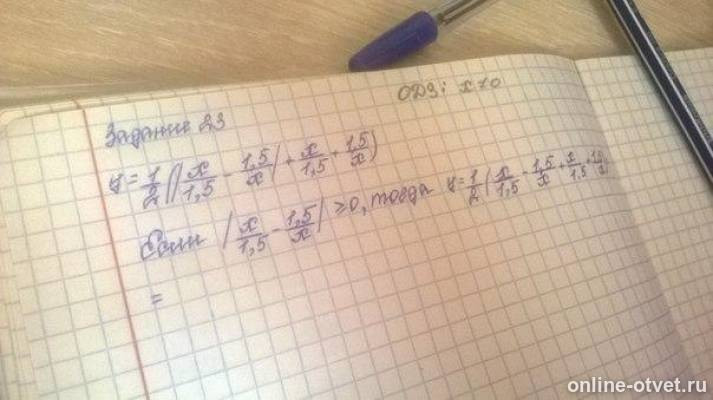 ОДЗ: x≠0
Задание 23
y = 1/2 (|x/1,5 - 1,5/x| + x/1,5 + 1,5/x)
Если |x/1,5 - 1,5/x| ≥ 0, тогда y = 1/2 (x/1,5 - 1,5/x + x/1,5 + 1,5/x)
=
online-otvet.ru